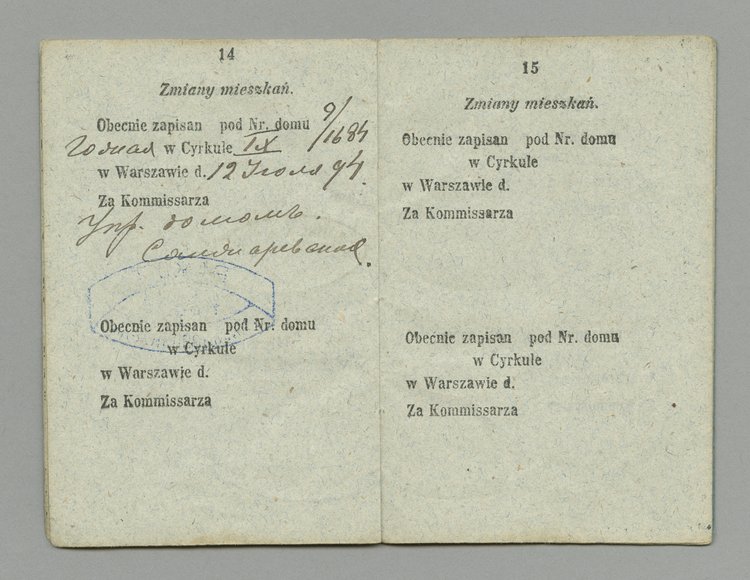 14
Zmiany mieszkań.
Obecnie zapisan pod Nr. domu 9/1684
w Cyrkule IX
w Warszawie d. 12 Іюля 94.
Za Kommissarza
Упр. домомъ.
Obecnie zapisan pod Nr. domu
w Cyrkule
w Warszawie d.
Za Kommissarza
15
Zmiany mieszkań.
Obecnie zapisan pod Nr. domu
w Cyrkule
w Warszawie d.
Za Kommissarza
Obecnie zapisan pod Nr. domu
w Cyrkule
w Warszawie d.
Za Kommissarza